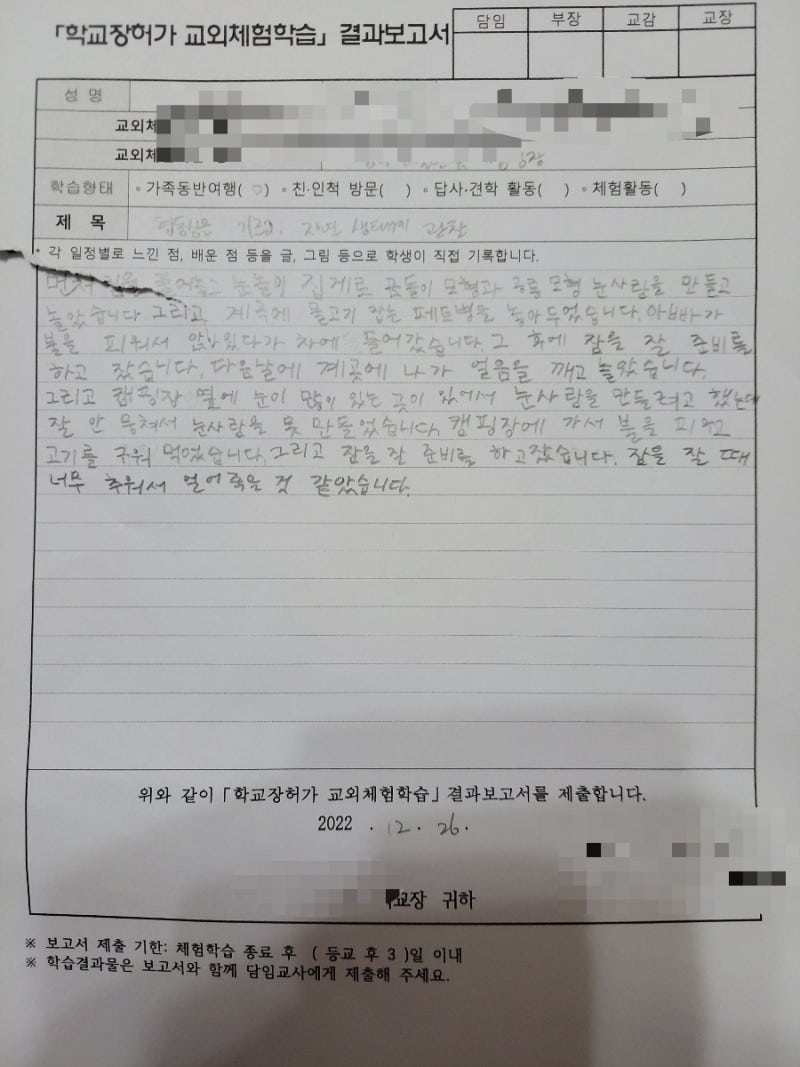 「학교장허가 교외체험학습」 결과보고서
담임 부장 교감 교장
성 명
교외체
교외체
학습형태 ◦가족동반여행( ○ ) ◦친·인척 방문( ) ◦답사·견학 활동( ) ◦체험활동( )
제 목 협동심은 기르고, 자연 생태계 관찰
* 각 일정별로 느낀 점, 배운 점 등을 글, 그림 등으로 학생이 직접 기록합니다.
먼저 짐을 풀어놓고 눈놀이 집게로 곰돌이 모형과 공룡 모형 눈사람을 만들고
놀았습니다. 그리고, 계곡에 물고기 잡는 페트병을 놓아두었습니다. 아빠가
불을 피워서 앉아있다가 차에 들어갔습니다. 그 후에 잠을 잘 준비를
하고 잤습니다. 다음날에 계곡에 나가 얼음을 깨고 놀았습니다.
그리고 캠핑장 옆에 눈이 많이 있는 곳이 있어서 눈사람을 만들려고 했는데
잘 안 뭉쳐서 눈사람을 못 만들었습니다. 캠핑장에 가서 불을 피우고
고기를 구워 먹었습니다. 그리고 잠을 잘 준비를 하고 잤습니다. 잠을 잘 때
너무 추워서 얼어죽을 것 같았습니다.
위와 같이 「학교장허가 교외체험학습」 결과보고서를 제출합니다.
2022 . 12 . 26.
교장 귀하
※ 보고서 제출 기한: 체험학습 종료 후 ( 등교 후 3 )일 이내
※ 학습결과물은 보고서와 함께 담임교사에게 제출해 주세요.